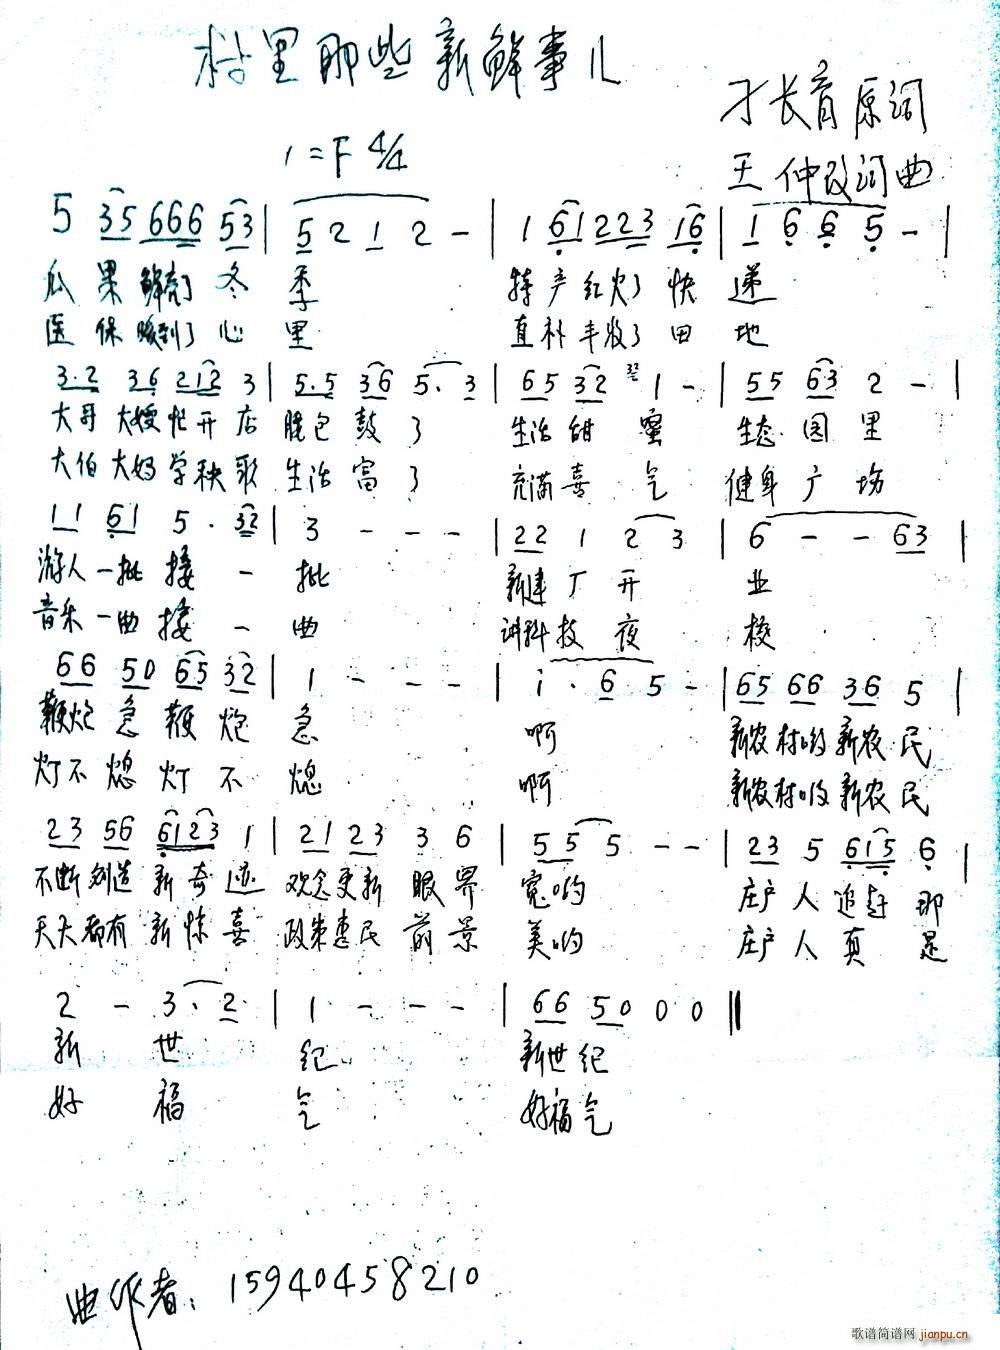 村里那些新鲜事儿
才长育原词
1=F 4/4
王仲改词曲
5 35 666 53 | 5 2 1 2 - | 1 61 223 16 | 1 6 6 5 - |
瓜果鲜亮了冬季 特产红火了快递
医保暖到了心里 直补丰收了田地
3·2 36 212 3 | 5·5 36 5·3 | 65 32 1 - | 55 63 2 - |
大哥大嫂忙开店 腰包鼓了 生活甜蜜 生态园里
大伯大妈学秧歌 生活富了 充满喜气 健身广场
11 61 5· 32 | 3 - - - | 22 1 2 3 | 6 - - 63 |
游人一批接一批 新建厂开业
音乐一曲接一曲 讲科技夜校
66 50 65 32 | 1 - - - | i· 6 5 - | 65 66 36 5 |
鞭炮急鞭炮急 啊 新农村哟新农民
灯不熄灯不熄 啊 新农村哟新农民
23 56 6123 1 | 21 23 3 6 | 5 5 5 - - | 23 5 615 6 |
不断创造新奇迹 观念更新眼界宽哟 庄户人追赶那
天天都有新惊喜 政策惠民前景美哟 庄户人真是
2 - 3·2 | 1 - - - | 66 50 0 0 ‖
新世纪 新世纪
好福气 好福气
曲作者：15940458210
歌谱简谱网 jianpu.cn